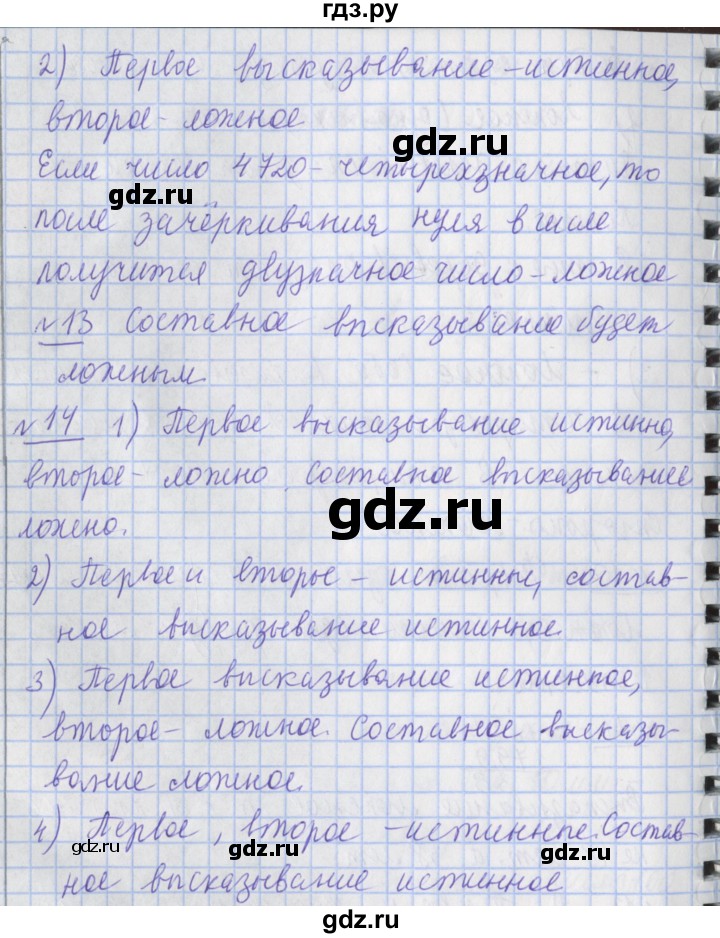 гдз.ру
2) Первое высказывание - истинное,
второе - ложное
gdz.ru
Если число 4720 - четырехзначное, то
gdz.ru
после зачёркивания нуля в числе
получится двузначное число - ложное
№13 Составное высказывание будет
ложным.
№14 1) Первое высказывание истинно,
второе - ложно. Составное высказывание
gdz.ru
ложно.
2) Первое и второе - истинны, состав-
ное высказывание истинное.
3) Первое высказывание истинное,
второе - ложное. Составное высказы-
вание ложное.
4) Первое, второе - истинные. Состав-
gdz.ru
gdz.ru
gdz.ru
ное высказывание истинное
gdz.ru